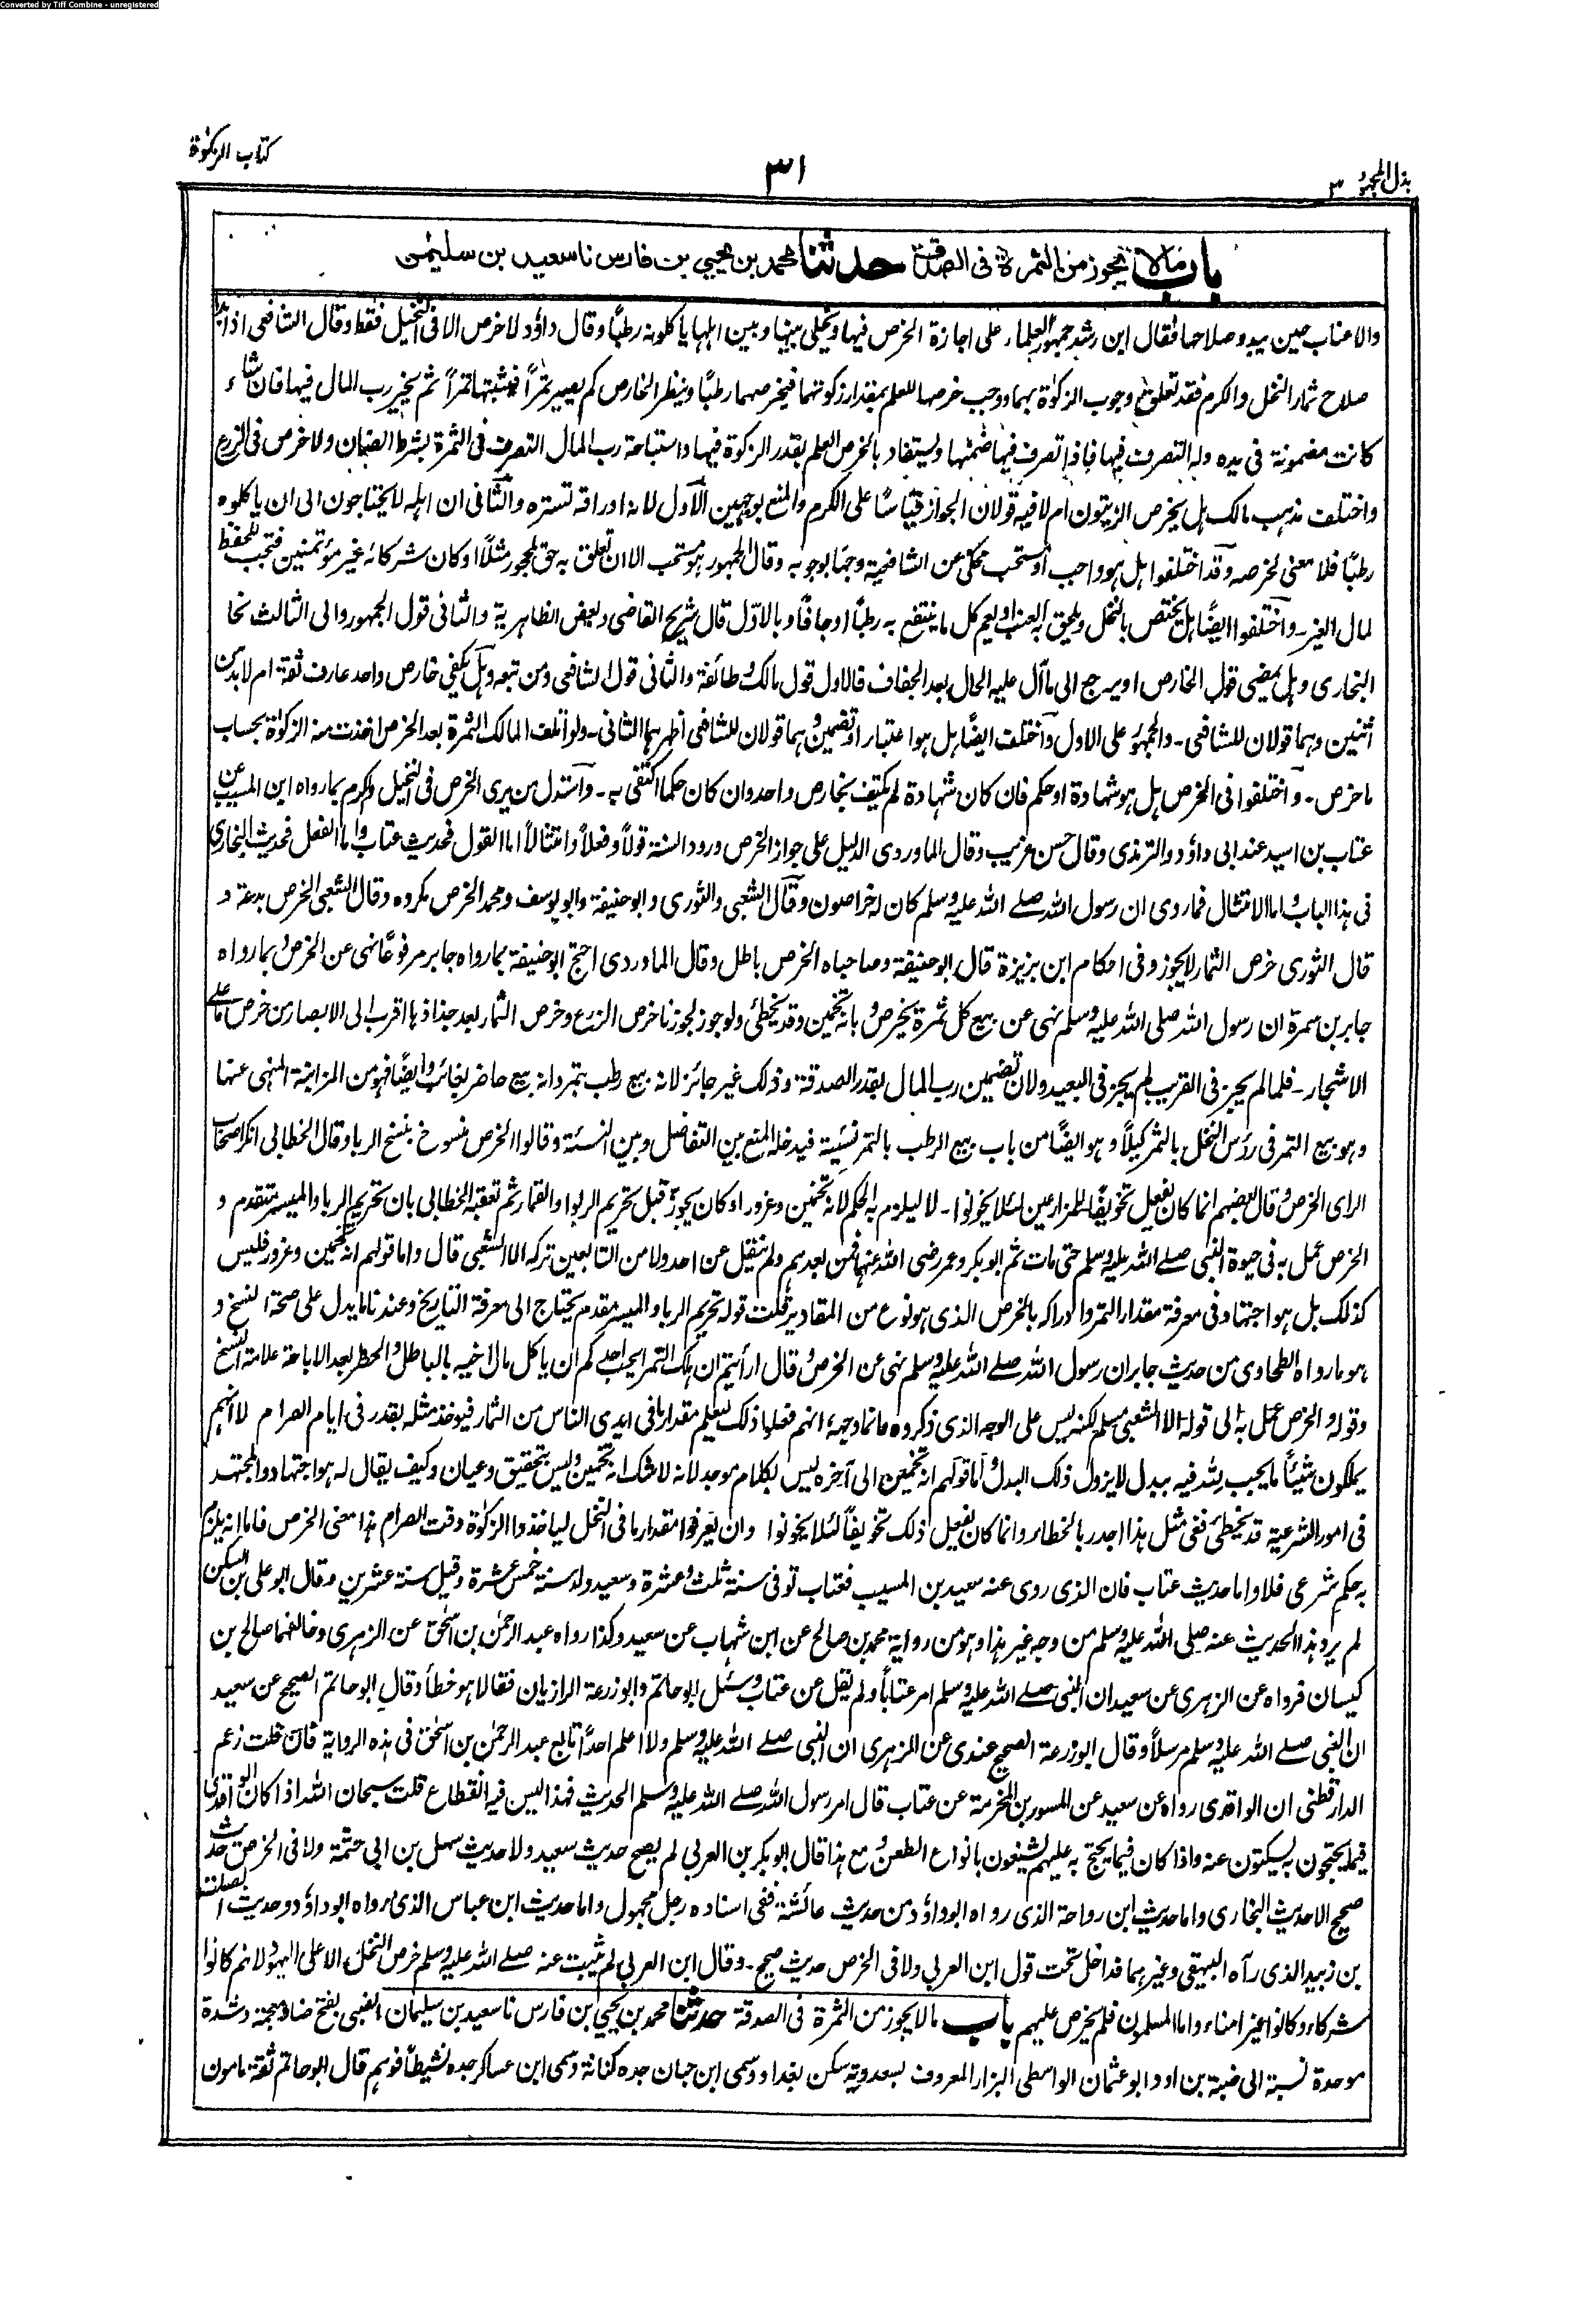 Converted by Tiff Combine - unregistered
كتاب الزكوٰة
٣١
بذل المجهود ٣
باب مالا يجوز من الثمرة في الصدقة حدثنا محمد بن يحيى بن فارس نا سعيد بن سليمٰن
والاعناب حين يبدو صلاحها فقال ابن رشد جمهور العلماء على اجازة الخرص فيها ويخلى بينها وبين اهلها ياكلونه رطبًا وقال داؤد لاخرص الا فى النخيل فقط وقال الشافعى اذا بدا
صلاح ثمار النخل والكرم فقد تعلق وجوب الزكوٰة بهما ووجب خرصها للعلم بمقدار زكوتهما فيخرصهما رطبًا وينظر الخارص كم يصير تمرًا فيثبتها تمرًا ثم يخير رب المال فيها فان شاء
كانت مضمونة فى يده وله التصرف فيها فاذا تصرف فيها ضمنها ويستفاد بالخرص العلم بقدر الزكوة فيها واستباحة رب المال التصرف فى الثمرة بشرط الضمان ولا خرص فى الزرع
واختلف مذهب مالك هل يخرص الزيتون ام لا فيه قولان الجواز قياسًا على الكرم والمنع بوجهين الاول لان اوراقه تستره والثانى ان اهله لا يحتاجون الى ان ياكلوه
رطبًا فلا معنى لخرصه وقد اختلفوا هل هو واجب او مستحب فحكى عن الشافعية وجها بوجوبه وقال الجمهور هو مستحب الا ان تعلق به حق لمحجور مثلًا او كان شركائه غير مؤتمنين فتجب لحفظ
لمال الغير - واختلفوا ايضًا هل يختص بالنخل ويلحق به العنب او يعم كل ما ينتفع به رطبًا وجافًا وبالاول قال شريح القاضى وبعض الظاهرية والثانى قول الجمهور والى الثالث نحا
البخارى وهل يمضى قول الخارص او يرجع الى ما آل عليه الحال بعد الجفاف فالاول قول مالك وطائفة والثانى قول الشافعى ومن تبعه وهل يكفى خارص واحد عارف ثقة ام لا بد من
اثنين وهما قولان للشافعى - والجمهور على الاول واختلف ايضًا هل هو اعتبار او تضمين وهما قولان للشافعى اظهرهما الثانى - ولو اتلف المالك الثمرة بعد الخرص اخذت منه الزكوٰة بحساب
ما خرص - واختلفوا فى الخرص هل هو شهادة او حكم فان كان شهادة لم يكتف بخارص واحد وان كان حكما اكتفى به - واستدل من يرى الخرص فى النخيل والكرم بما رواه ابن المسيب عن
عتاب بن اسيد عند ابى داؤد والترمذى وقال حسن غريب وقال الماوردى الدليل على جواز الخرص ورود السنة قولًا وفعلًا وامتثالًا اما القول فحديث عتاب واما الفعل فحديث البخارى
فى هذا الباب واما الامتثال فما روى ان رسول الله صلے الله عليه وسلم كان له خراصون وقال الشعبى والثورى وابو حنيفة وابو يوسف ومحمد الخرص مكروه وقال الشعبى الخرص بدعة و
قال الثورى خرص الثمار لا يجوز وفى احكام ابن بزيزة قال ابو حنيفة وصاحباه الخرص باطل وقال الماوردى احتج ابو حنيفة بما رواه جابر مرفوعًا نهى عن الخرص وبما رواه
جابر بن سمرة ان رسول الله صلى الله عليه وسلم نهى عن بيع كل ثمرة بخرص وبانه تخمين وقد يخطئ ولو جوز لجوزنا خرص الزرع وخرص الثمار بعد جذاذها اقرب الى الابصار من خرص ما على
الاشجار - فلما لم يجز فى القريب لم يجز فى البعيد ولان تضمين رب المال بقدر الصدقة وذلك غير جائز لانه بيع رطب بتمر وانه بيع حاضر بغائب وايضًا فهو من المزابنة المنهى عنها
وهو بيع التمر فى رؤس النخل بالتمر كيلًا وهو ايضًا من باب بيع الرطب بالتمر نسيئة فيدخله المنع بين التفاضل وبين النسئة وقالوا الخرص منسوخ بنسخ الربا وقال الخطابى انكر اصحاب
الراى الخرص وقال بعضهم انما كان يفعل تخويفًا للمزارعين لئلا يخونوا - لا ليلزم به الحكم لانه تخمين وغرور او كان يجوز قبل تحريم الربوا والقمار ثم تعقبه الخطابى بان تحريم الربا والميسر متقدم و
الخرص عمل به فى حيوة النبى صلے الله عليه وسلم حتى مات ثم ابو بكر وعمر رضى الله عنهما فمن بعدهم ولم ينقل عن احد ولا من التابعين تركه الا الشعبى قال واما قولهم انه تخمين وغرور فليس
كذلك بل هو اجتهاد فى معرفة مقدار التمر وادراكه بالخرص الذى هو نوع من المقادير قلت قوله تحريم الربا والميسر مقدم يحتاج الى معرفة التاريخ وعندنا ما يدل على صحة النسخ و
هو ما رواه الطحاوى من حديث جابر ان رسول الله صلے الله عليه وسلم نهى عن الخرص وقال ارأيتم ان هلك التمر ايحب احدكم ان ياكل مال اخيه بالباطل والحظر بعد الاباحة علامة النسخ
وقوله والخرص عمل به الى قوله الا الشعبى مسلم لكنه ليس على الوجه الذى ذكروه وانما وجهه انهم فعلوا ذلك ليعلم مقدار ما فى ايدى الناس من الثمار فيوخذ مثله بقدر فى ايام الصرام لا انهم
يملكون شيئًا ما يجب لله فيه ببدل لا يزول ذلك البدل واما قولهم انه تخمين الى آخره ليس بكلام موجه لانه لا شك انه تخمين وليس بتحقيق وعيان وكيف يقال له هو اجتهاد والمجتهد
فى امور الشرعية قد يخطئ ففى مثل هذا اجدر بالخطاء وانما كان يفعل ذلك تخويفًا لئلا يخونوا وان يعرفوا مقدار ما فى النخل لياخذوا الزكوٰة وقت الصرام هذا معنى الخرص فاما انه يلزم
به حكم شرعى فلا واما حديث عتاب فان الذى روى عنه سعيد بن المسيب فعتاب توفى سنة ثلث وعشرة وسعيد ولد سنة خمس عشرة وقيل سنة عشرين وقال ابو على بن السكن
لم يرو هذا الحديث عنه صلى الله عليه وسلم من وجه غير هذا وهو من رواية محمد بن صالح عن ابن شهاب عن سعيد وكذا رواه عبد الرحمٰن بن اسحٰق عن الزهرى وخالفهما صالح بن
كيسان فرواه عن الزهرى عن سعيد ان النبى صلے الله عليه وسلم امر عتابًا ولم يقل عن عتاب وسئل ابو حاتم وابو زرعة الرازيان فقالا هو خطأ وقال ابو حاتم الصحيح عن سعيد
ان النبى صلے الله عليه وسلم مرسلًا وقال ابو زرعة الصحيح عندى عن الزهرى ان النبى صلے الله عليه وسلم ولا اعلم احدًا تابع عبد الرحمٰن بن اسحٰق فى هذه الرواية فان قلت زعم
الدارقطنى ان الواقدى رواه عن سعيد عن المسور بن المخرمة عن عتاب قال امر رسول الله صلے الله عليه وسلم الحديث فهذا ليس فيه انقطاع قلت سبحان الله اذا كان الواقدى
فيما يحتجون به يسكتون عنه واذا كان فيما يحتج به عليهم يشنعون بانواع الطعن ومع هذا قال ابو بكر بن العربى لم يصح حديث سعيد ولا حديث سهل بن ابى حثمة ولا فى الخرص حديث
صحيح الا حديث البخارى واما حديث ابن رواحة الذى رواه ابو داؤد من حديث عائشة ففى اسناده رجل مجهول واما حديث ابن عباس الذى رواه ابو داؤد وحديث الصلت
بن زبيد الذى رآه البيهقى وغيرهما فداخل تحت قول ابن العربى ولا فى الخرص حديث صحيح - وقال ابن العربى لم يثبت عنه صلے الله عليه وسلم خرص النخل الا على اليهود لانهم كانوا
شركاء وكانوا غير امناء واما المسلمون فلم يخرص عليهم باب مالا يجوز من الثمرة فى الصدقة حدثنا محمد بن يحيى بن فارس نا سعيد بن سليمان الضبى بفتح ضاد معجمة وشدة
موحدة نسبة الى ضبة بن اود ابو عثمان الواسطى البزار المعروف بسعدوية سكن بغداد وسمى ابن حبان جده كنانة وسمى ابن عساكر جده نشيطا فوهم قال ابو حاتم ثقة مامون